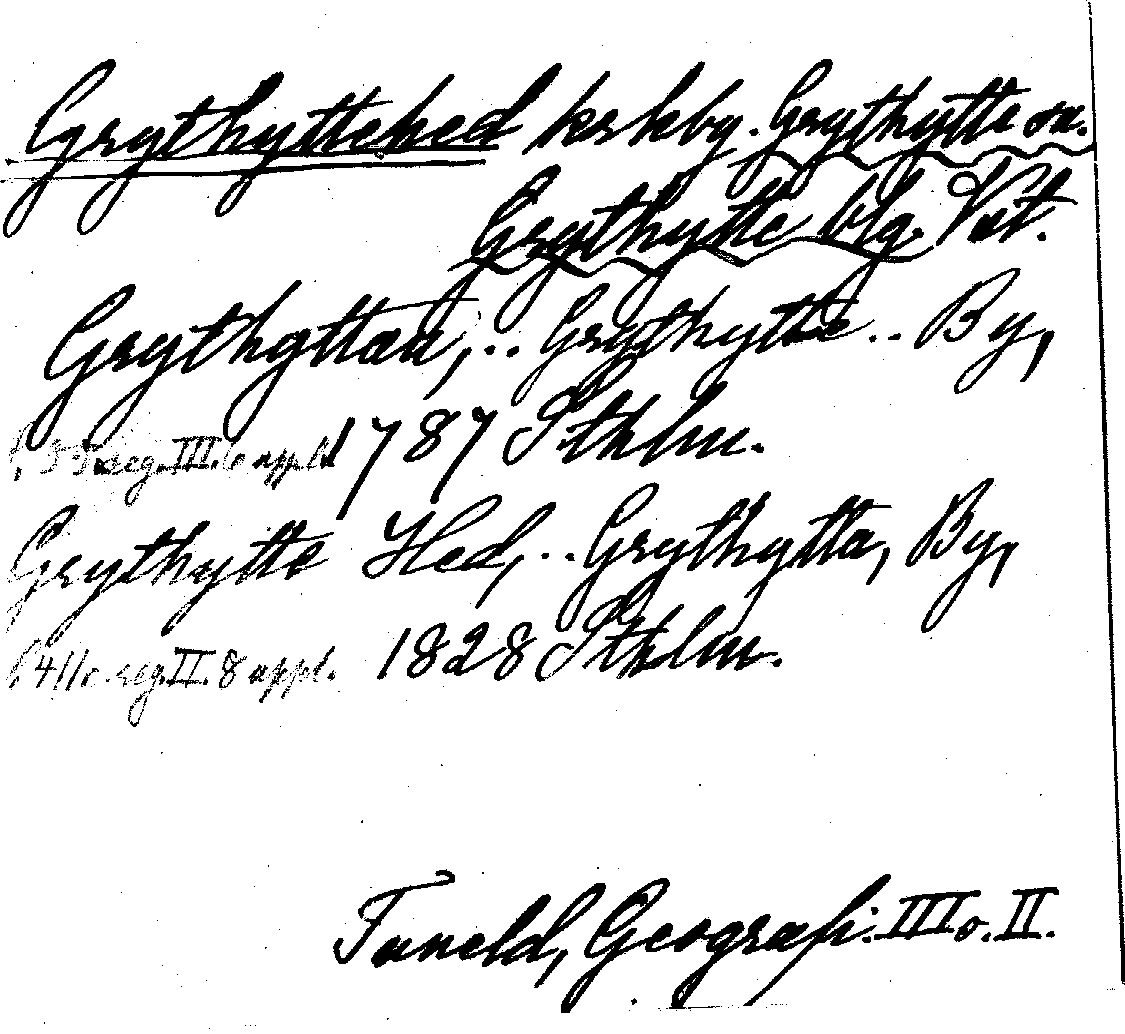 Grythyttehed krkby. Grythytte sn.
Grythytte blg. Vst.
Grythyttan, .. Grythytte .. By,
1787 Sthlm.
Grythytte Hed, .. Grythytta, By,
reg. II. 8 uppl. 1828 Sthlm.
Tuneld, Geografi. III o. II.